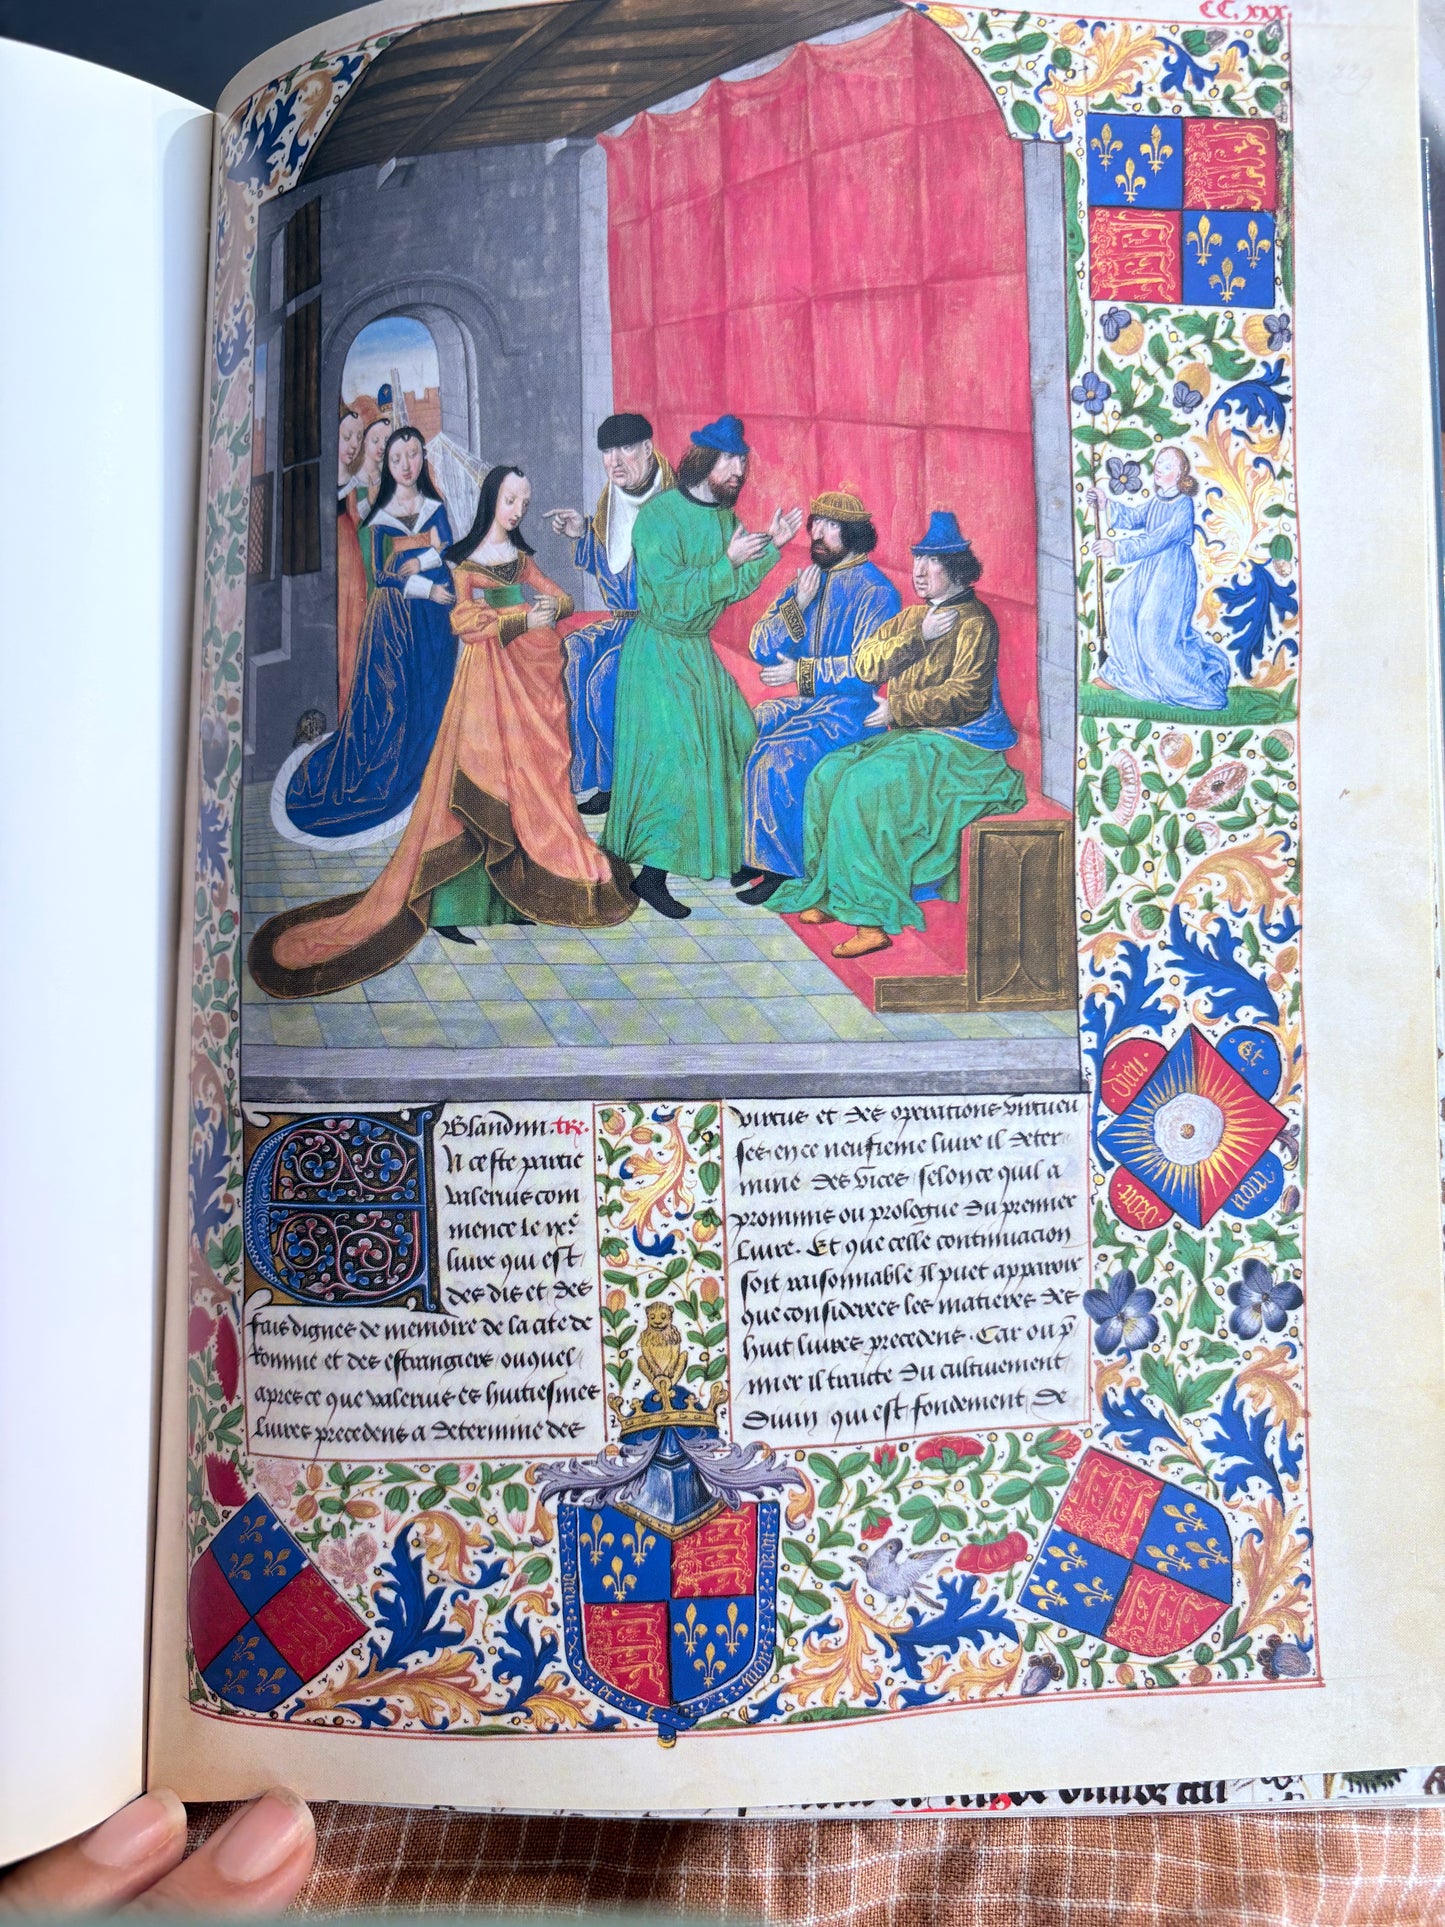 CC.xxx.
229
Blandim: tre.
N ceste partie
Valerius com
mence le ixe.
livre qui est
des dis et des
fais dignes de memoire de la cite de
Romme et des estrangiers. ouquel
apres ce que Valerius es huitiesmes
livres precedens a determine des
virtus et des operations virtueu
ses. en ce neufieme livre il deter
mine des vices. selon ce qu'il a
prommis ou prologue du premier
livre. Et que celle continuacion
soit raisonnable Il puet apparoir
que considerees les matieres des
huit livres precedens. Car ou p
mier il traicte du cultivement
divin qui est fondement de
dieu
Et
mon
droit
dieu
et
mon
droit